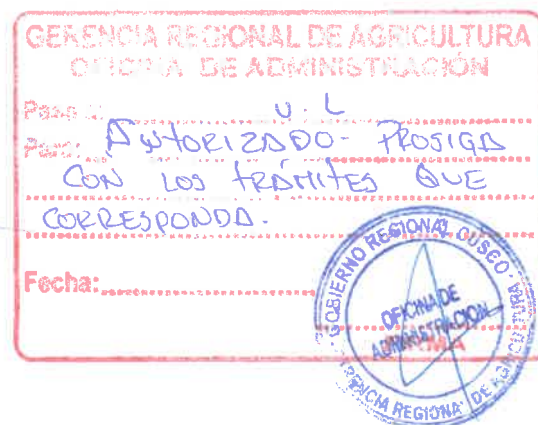 GERENCIA REGIONAL DE AGRICULTURA
OFICINA DE ADMINISTRACIÓN
Pase a: U.L
Para: AUTORIZADO - PROSIGA
CON LOS TRÁMITES QUE
CORRESPONDA.
Fecha:
GOBIERNO REGIONAL CUSCO
OFICINA DE
ADMINISTRACION
GERENCIA REGIONAL DE AGRICULTURA